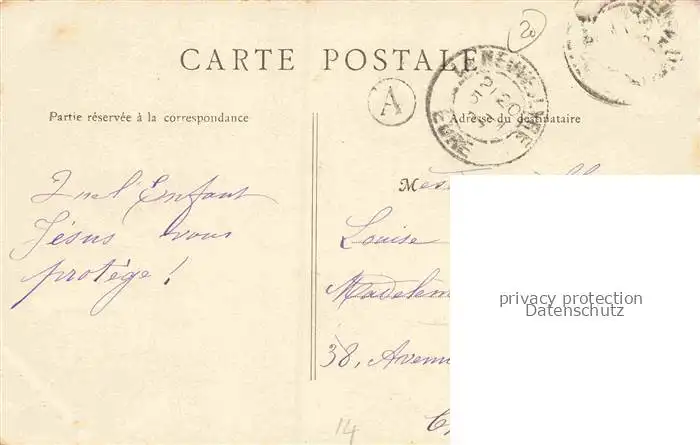 20
CARTE POSTALE
A
EURE
Partie réservée à la correspondance
Adresse du destinataire
Quel'Enfant
Jésus vous
protège !
Louise
Madelein
38, Avenu
14
privacy protection
Datenschutz